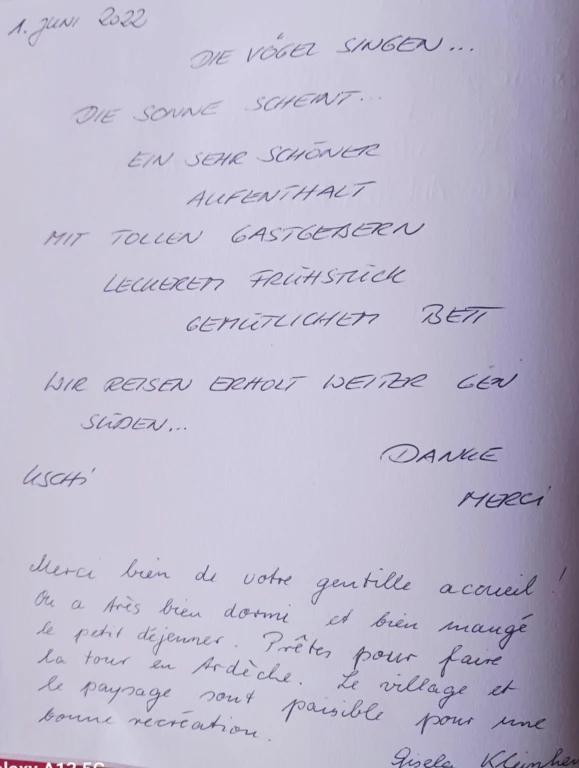 1. JUNI 2022
DIE VÖGEL SINGEN...
DIE SONNE SCHEINT...
EIN SEHR SCHÖNER
AUFENTHALT
MIT TOLLEN GASTGEBERN
LECKEREM FRÜHSTÜCK
GEMÜTLICHEM BETT
WIR REISEN ERHOLT WEITER GEN
SÜDEN...
DANKE
USCHI
MERCI
Merci bien de votre gentille acoueil !
On a très bien dormi et bien mangé
le petit déjeuner. Prêtes pour faire
la tour en Ardèche. Le village et
le paysage sont paisible pour une
bonne recréation.
Gisela
A12 5G